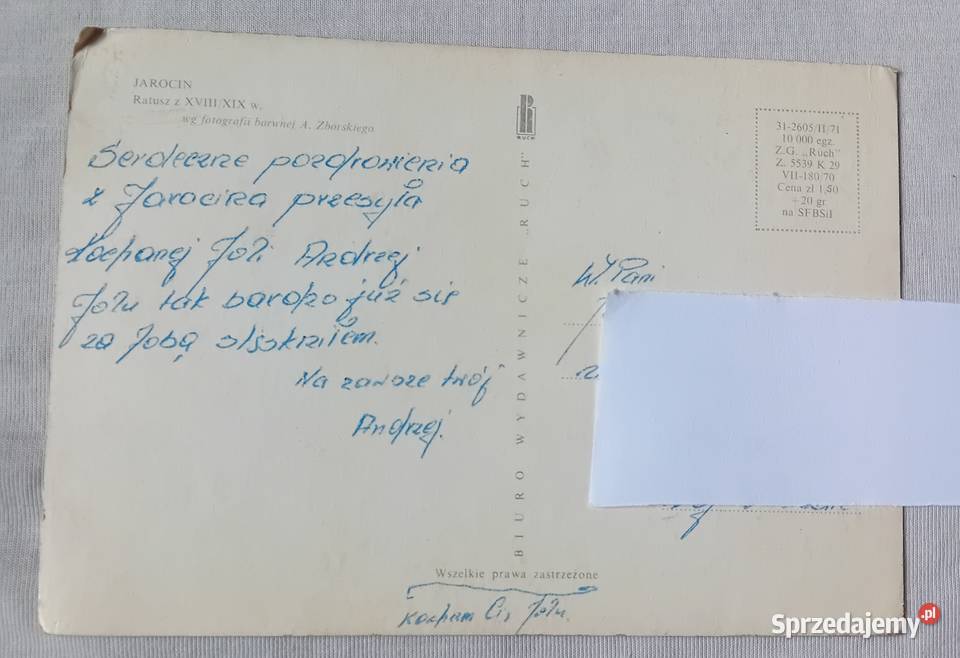 JAROCIN
Ratusz z XVIII/XIX w.
wg fotografii barwnej A. Zborskiego
Serdeczne pozdrowienia
z Jarocina przesyła
Kochanej Joli Andrzej
Jolu tak bardzo już się
za Tobą stęskniłem.
Na zawsze twój
Andrzej.
Wszelkie prawa zastrzeżone
Kocham Cię Jolu.
BIURO WYDAWNICZE „RUCH"
RUCH
31-2605/II/71
10 000 egz.
Z.G. „Ruch"
Z. 5539 K 29
VII-180/70
Cena zł 1,50
+20 gr
na SFBSiI
W. Pani
Sprzedajemy.pl